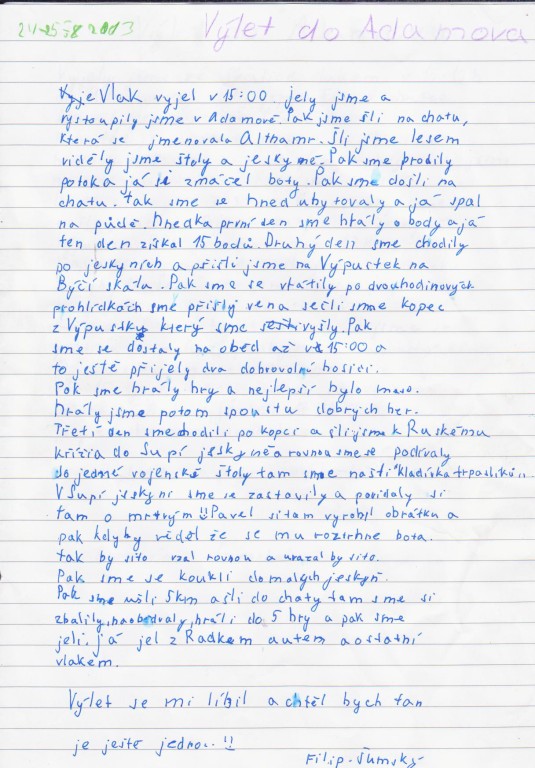 24-25 8 2013 Výlet do Adamova
Vlak vyjel v 15:00 jely jsme a
vystoupily jsme v Adamově. Pak jsme šli na chatu,
která se jmenovala Althamr. Šli jsme lesem
viděly jsme štoly a jeskyně. Pak sme prošly
potoka já si zmáčel boty. Pak sme došli na
chatu. tak sme se hned ubytovaly a já spal
na půdě. hnedka první den sme hrály o body a já
ten den získal 15 bodů. Druhý den sme chodily
po jeskyních a přišli jsme na Výpustek na
Býčí skálu. Pak sme se vrátily po dvouhodinových
prohlídkách sme přišly vena sešli sme kopec
z Výpustku který sme vyšly. Pak
sme se dostaly na oběd až v 15:00 a
to ještě přijely dva dobrovolní hosicí.
Pak sme hrály hry a nejlepší bylo maso.
hrály jsme potom spoustu dobrých her.
Třetí den sme chodili po kopci a šli jsme k Ruskému
křížia do Supí jeskyně a rovnou sme se podívaly
do jedné vojenské štoly tam sme našli "kladívka trpaslíků"
V Supí jeskyni sme se zastavily a povídaly si
tam o mrtvým!! Pavel si tam vyrobil obrátku a
pak kdyby věděl že se mu roztrhne bota.
tak by sito vzal rovnou a urazal by sito.
Pak sme se koukli do malých jeskyň.
Pak sme ušli 5km a šli do chaty tam sme si
zbalily, naobědvaly, hráli do 5 hry a pak sme
jeli. já jel z Radkem autem a ostatní
vlakem.
Výlet se mi líbil a chtěl bych tan
je ještě jednou. !!
Filip Šumský